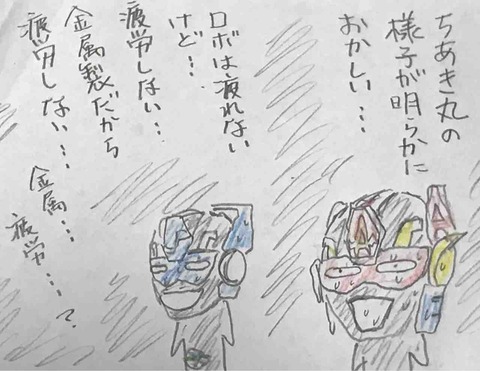 ちあき丸の
様子が明らかに
おかしい…
ロボは疲れない
けど…
疲労しない…
金属製だから
疲労しない…
金属…
疲労…?